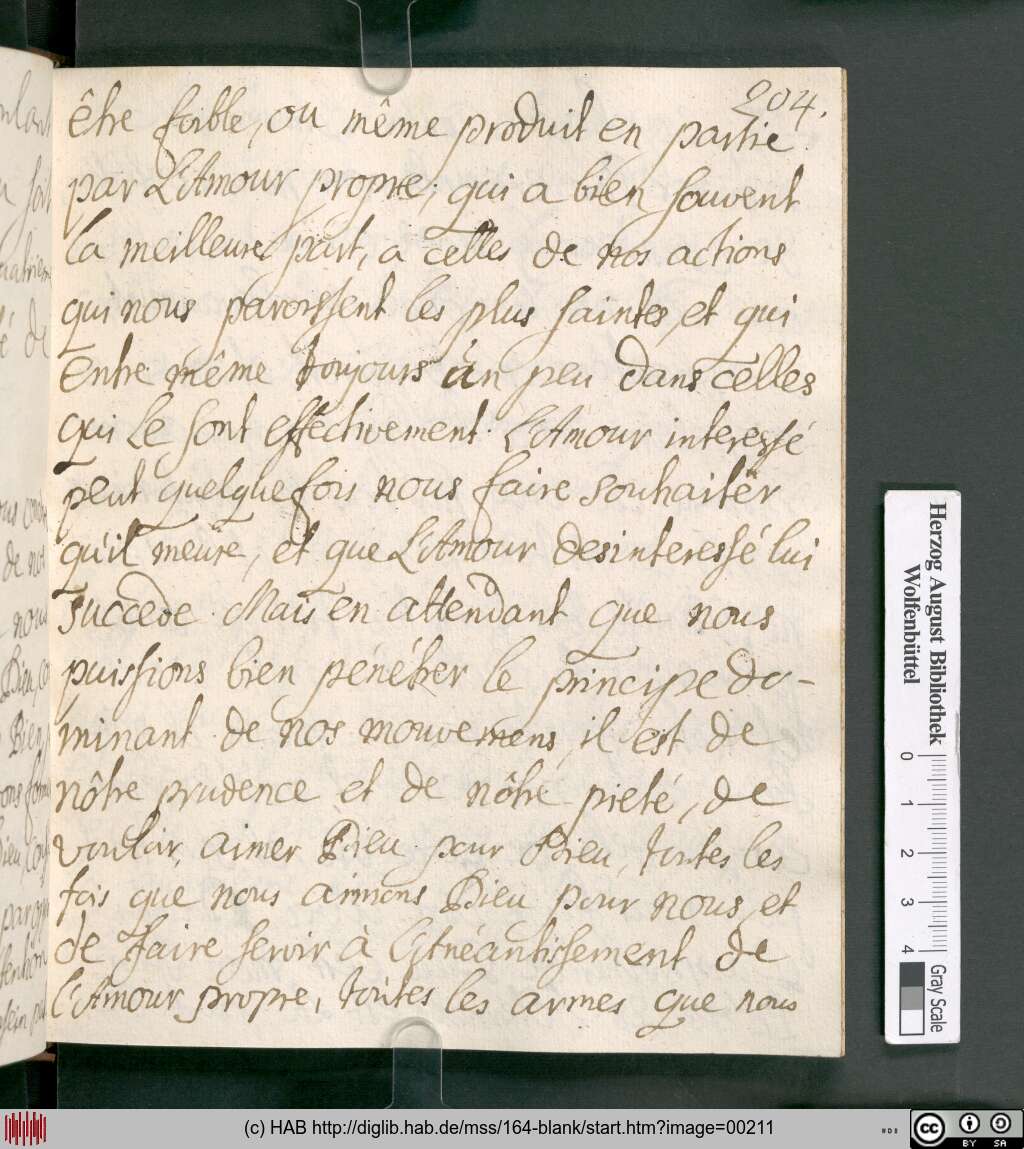 204.
être foible, ou même produit en partie
par L'Amour propre; qui a bien souvent
la meilleure part, a celles de nos actions
qui nous paroissent les plus saintes, et qui
Entre même toujours un peu dans celles
qui le sont effectivement. L'Amour interessé
peut quelque fois nous faire souhaiter
qu'il meure, et que L'Amour desinteressé lui
succede. Mais en attendant que nous
puissions bien pénétrer le principe do-
minant de nos mouvemens, il est de
nôtre prudence et de nôtre pieté, de
vouloir, aimer Dieu pour Dieu, toutes les
fois que nous aimons Dieu pour nous, et
de faire servir à l'Anéantissement de
l'Amour propre, toutes les armes que nous
Herzog August Bibliothek
Wolfenbüttel
0 1 2 3 4
Gray Scale
(c) HAB http://diglib.hab.de/mss/164-blank/start.htm?image=00211
cc BY SA